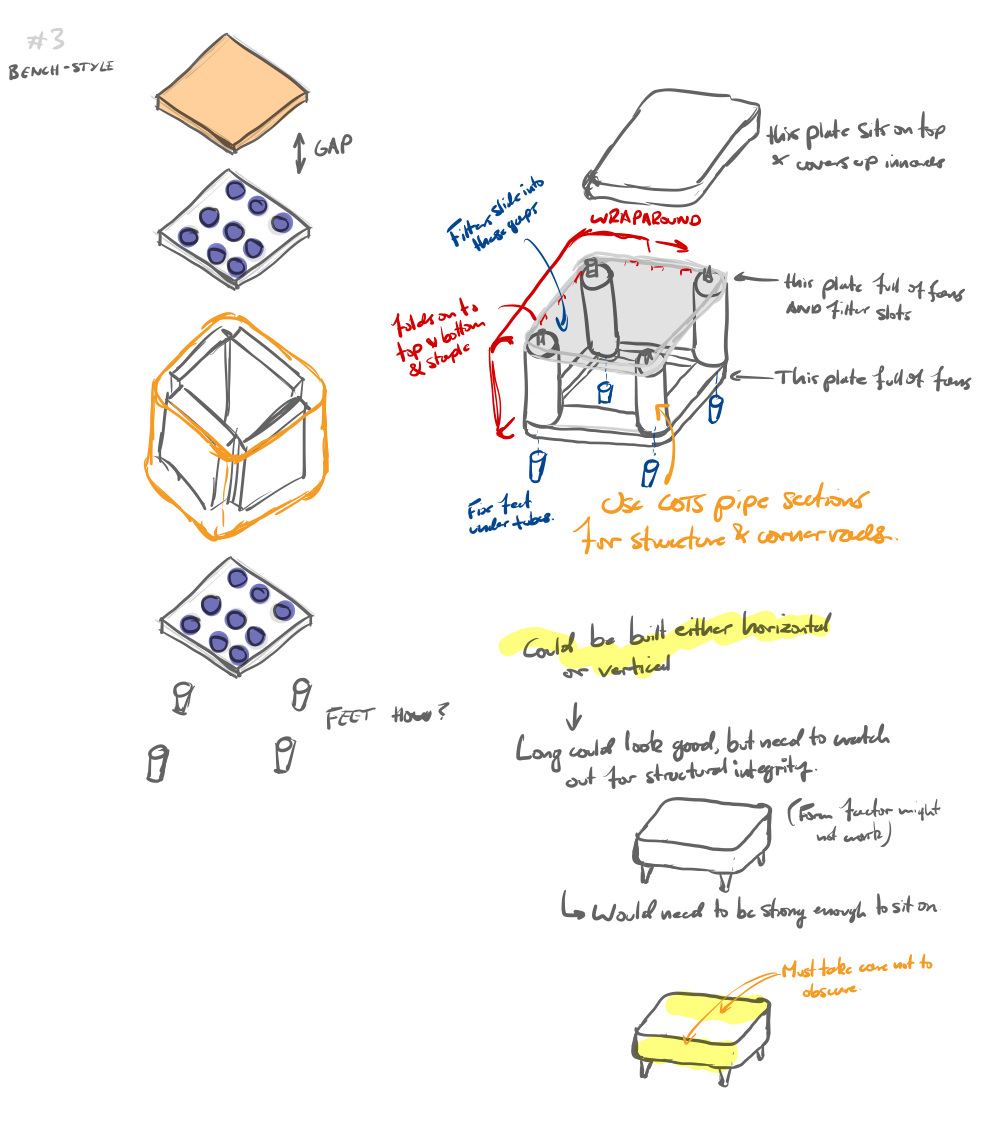 #3
BENCH-STYLE
GAP
this plate sits on top
& covers up innards
Filters slide into
these gaps
WRAPAROUND
folds on to
top & bottom
& staple
this plate full of fans
AND filter slots
This plate full of fans
Fix feet
under tubes.
Use COTS pipe sections
for structure & corner rads.
FEET HOW?
Could be built either horizontal
or vertical
Long could look good, but need to watch
out for structural integrity.
(Form factor might
not work)
Would need to be strong enough to sit on
Must take care not to
obscure.